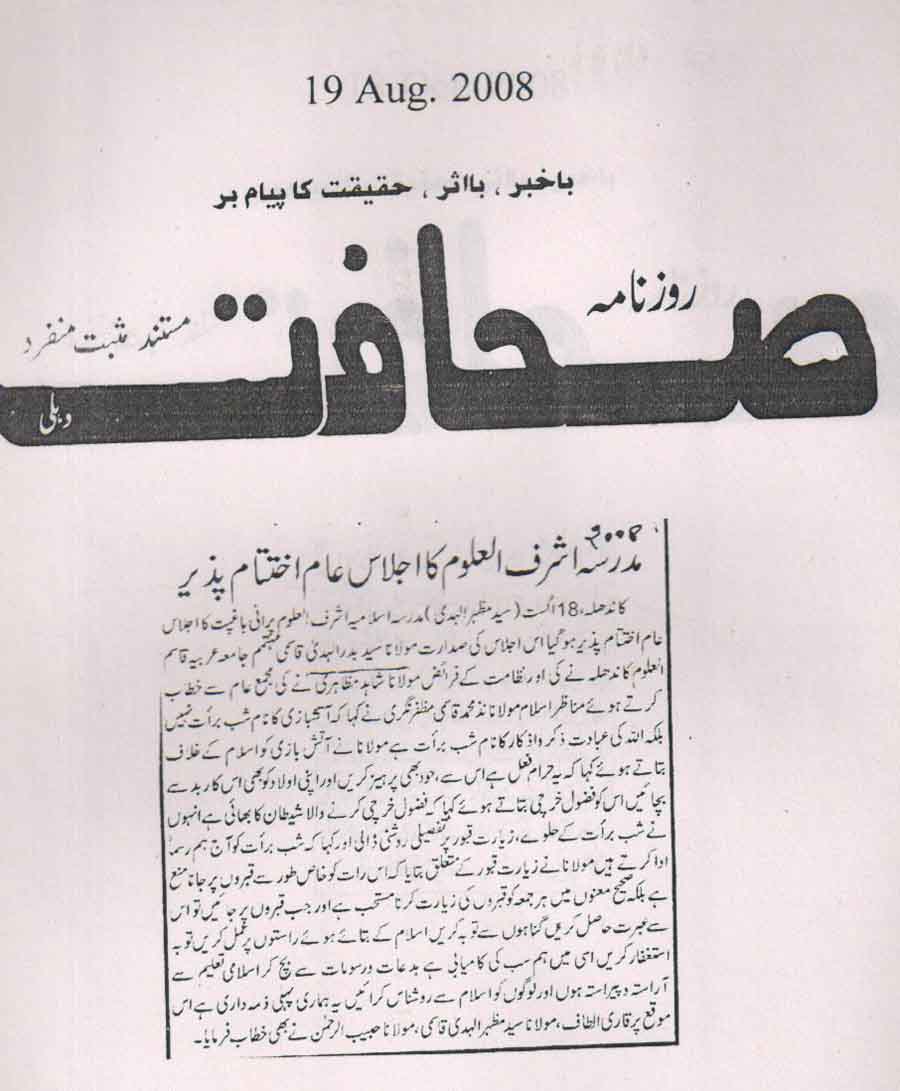 19 Aug. 2008
باخبر، بااثر، حقیقت کا پیام بر
روزنامہ
صحافت
مستند مثبت منفرد
دہلی
۲۰۰۸
مدرسہ اشرف العلوم کا اجلاس عام اختتام پذیر
کاندھلہ، 18 اگست (سید مظہر الہدی) مدرسہ اسلامیہ اشرف العلوم برانی باغپت کا اجلاس
عام اختتام پذیر ہوگیا اس اجلاس کی صدارت مولانا سید بدر الہدیٰ قاسمی مہتمم جامعہ عربیہ قاسم
العلوم کاندھلہ نے کی اور نظامت کے فرائض مولانا شاہد مظاہری نے کی مجمع عام سے خطاب
کرتے ہوئے مناظر اسلام مولانا نذ محمد قاسمی مظفر نگری نے کہا کہ آتشبازی کا نام شب برأت نہیں
بلکہ اللہ کی عبادت ذکر و اذکار کا نام شب برأت ہے مولانا نے آتش بازی کو اسلام کے خلاف
بتاتے ہوئے کہا کہ یہ حرام فعل ہے اس سے، خود بھی پرہیز کریں اور اپنی اولاد کو بھی اس کار بد سے
بچائیں اس کو فضول خرچی بتاتے ہوئے کہا کہ فضول خرچی کرنے والا شیطان کا بھائی ہے انہوں
نے شب برأت کے حلوے، زیارت قبور پر تفصیلی روشنی ڈالی اور کہا کہ شب برأت کو آج ہم رسماً
ادا کرتے ہیں مولانا نے زیارت قبور کے متعلق بتایا کہ اس رات کو خاص طور سے قبروں پر جانا منع
ہے بلکہ صحیح معنوں میں ہر جمعہ کو قبروں کی زیارت کرنا مستحب ہے اور جب قبروں پر جائیں تو اس
سے عبرت حاصل کریں گناہوں سے توبہ کریں اسلام کے بتائے ہوئے راستوں پر عمل کریں توبہ
استغفار کریں اسی میں ہم سب کی کامیابی ہے بدعات و رسومات سے بچ کر اسلامی تعلیم سے
آراستہ و پیراستہ ہوں اور لوگوں کو اسلام سے روشناس کرائیں یہ ہماری پہلی ذمہ داری ہے اس
موقع پر قاری الطاف، مولانا سید مظہر الہدی قاسمی، مولانا حبیب الرحمٰن نے بھی خطاب فرمایا۔